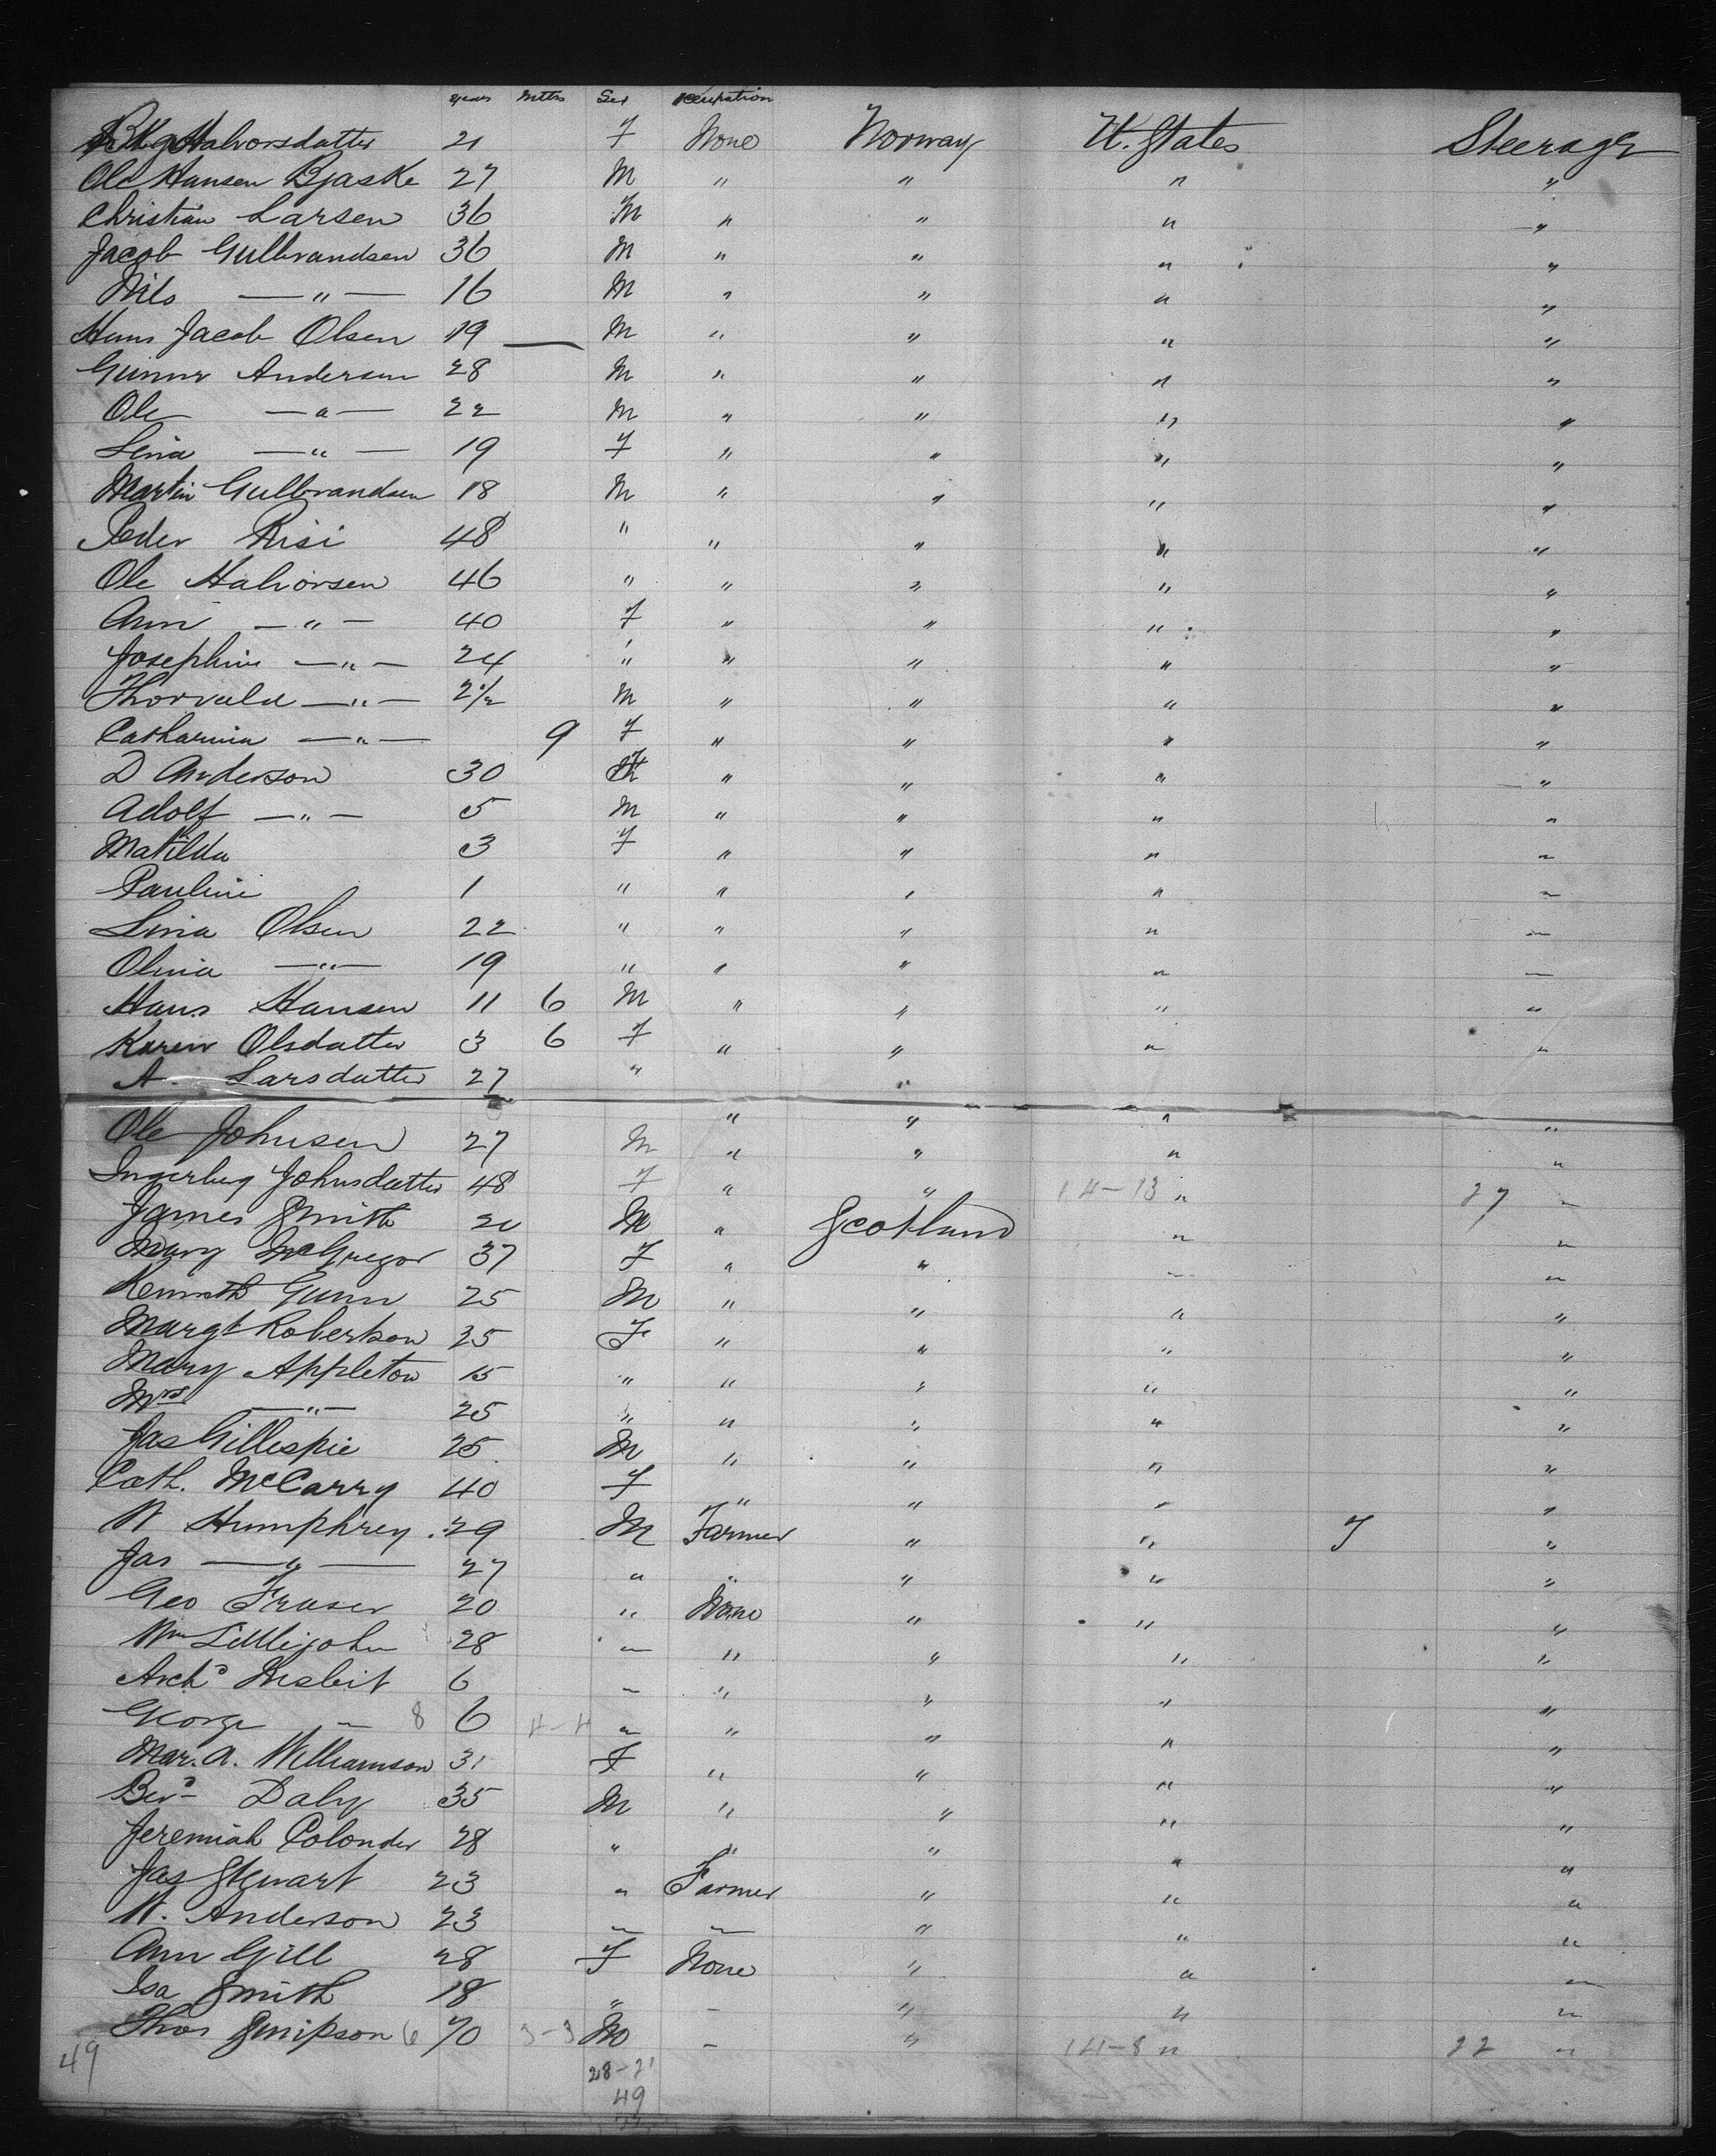 years mths Sex Occupation
Halvorsdatter 21 F None Norway U. States Steerage
Ole Hansen Bjaske 27 M " " " "
Christian Larsen 36 M " " " "
Jacob Gulbrandsen 36 M " " " "
Nils — " — 16 M " " " "
Hans Jacob Olsen 19 — M " " " "
Gunnr Andersen 28 M " " " "
Ole — " — 22 M " " " "
Lina — " — 19 F " " " "
Martin Gulbrandsen 18 M " " " "
Peder Risi 48 " " " " "
Ole Halvorsen 46 " " " " "
Ann — " — 40 F " " " "
Josephine — " — 24 " " " " "
Thorvald — " — 2½ M " " " "
Catharina — " — 9 F " " " "
D Anderson 30 F " " " "
Adolf — " — 5 M " " " "
Matilda 3 F " " " "
Pauline 1 " " " " "
Lina Olsen 22 " " " " "
Olivia — " — 19 " " " " "
Hans Hansen 11 6 M " " " "
Karen Olsdatter 3 6 F " " " "
A. Larsdatter 27 " " " " "
Ole Johnsen 27 M " " " "
Ingerbeg Johnsdatter 48 F " " 14-13 " 27 "
James Smith 20 M " Scotland " "
Mary McGregor 37 F " " " "
Kenneth Gunn 25 M " " " "
Margt Robertson 35 F " " " "
Mary Appleton 15 " " " " "
Mrs — " — 25 " " " " "
Jas Gillespie 25 M " " " "
Cath. McCarry 40 F " " " "
W Humphrey 29 M Farmer " " "
Jas — " — 27 " " " " "
Geo Fraser 20 " None " " "
Wm Littlejohn 28 " " " " "
Archd Nisbit 6 " " " " "
George " 8 6 4-4 " " " " "
Mar. A. Williamson 31 F " " " "
Daly 35 M " " " "
Jeremiah Colonder 28 " " " " "
Jas Stewart 23 " Farmer " " "
W. Anderson 23 " " " " "
Ann Gill 28 F None " " "
Isa Smith 18 " " " " "
Thos Simpson 6 70 3-3 M " " 14-8 " 22 "
49 28-21
49